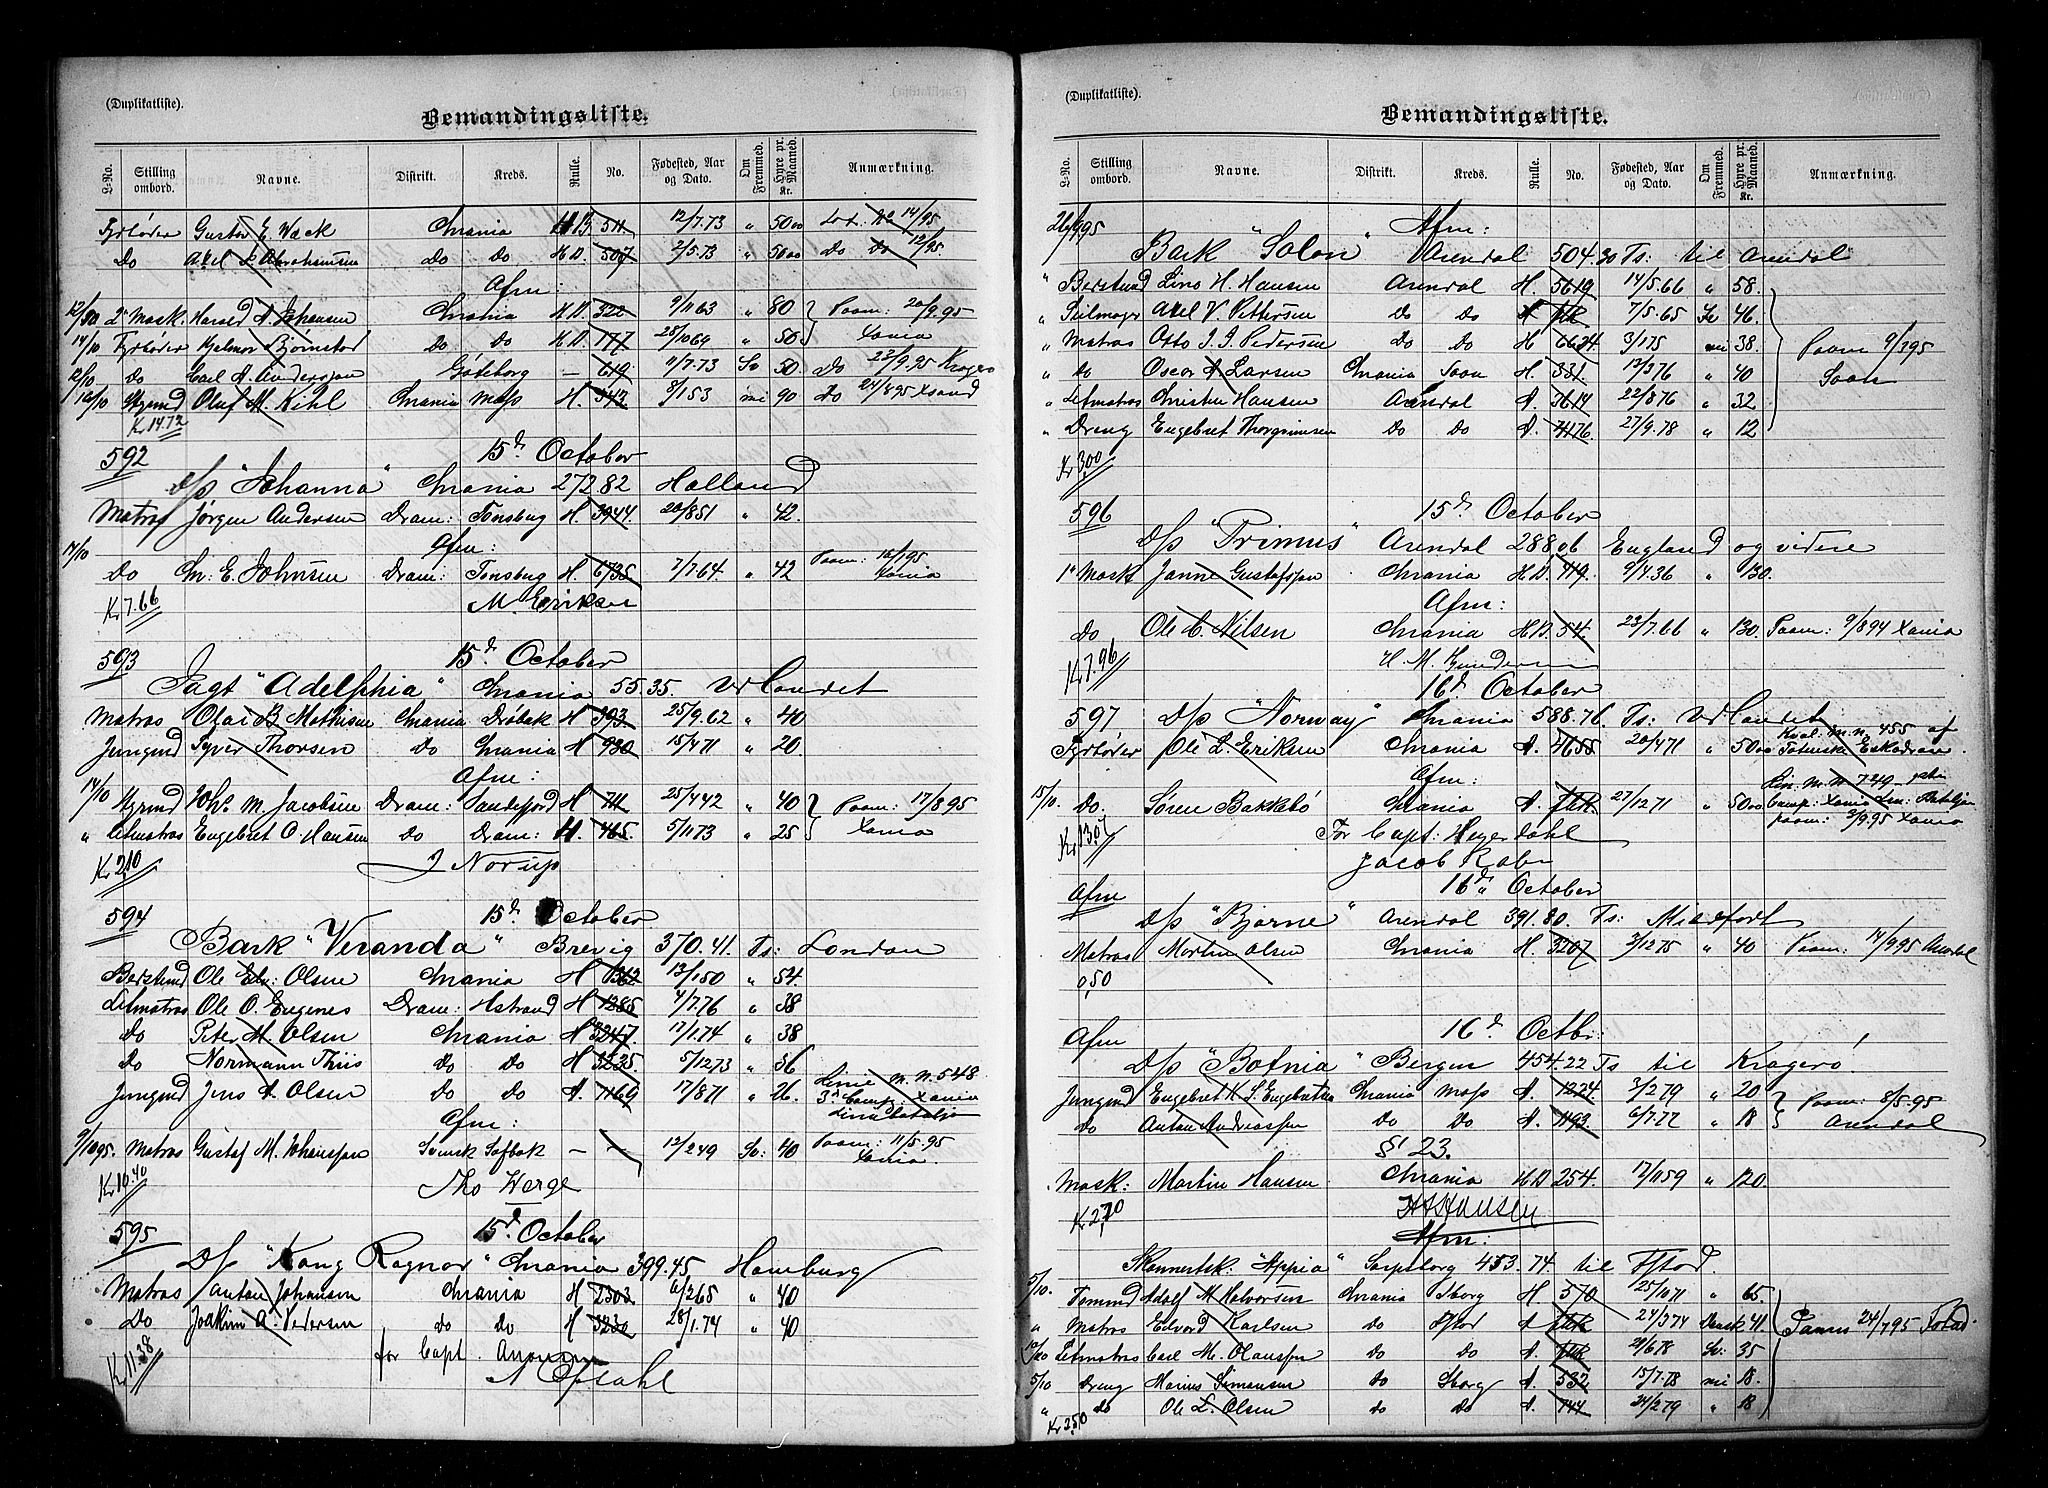 (Duplikatliste).
Bemandingsliste.
L-No. Stilling ombord. Navne. Distrikt. Kreds. Rulle. No. Fødested, Aar og Dato. Om Fremmed. Hyre pr. Maaned. Kr. Anmærkning.
Fyrbøder Gustav E. Wack Chrania HD 511 12/7.73 " 50 00 14/95
Do Axel Abrahamsen Do Do HD. 507 2/5.73 " 50 00 Do Do 12/95
Afm:
12/10 2' Mask. Harald A. Johansen Chrania HD. 322 9/11 63 " 80 Paam: 20/9.95
14/10 Fyrbøder Hjalmar Bjørnstad Do Do HD. 177 25/10 69 " 50 Xania
12/10 Do Carl A. Andersson Göteborg — 619 11/7.73 Sv 50 Do 23/9.95 Kragerø
12/10 Styrmd Oluf M. Kihl Chrania Moss H. 342 8/1 53 nei 90 Do 24/8 95 Xsand
Kr 14.72
592 15d October
D/s "Johanna" Chrania 272 82 Holland
Matros Jørgen Andersen Dram: Tonsberg H. 3944 20/8 51 " 42.
Afm:
14/10 Do Chr. E. Johnsen Dram: Tonsberg H. 6735 7/7.64. " 42 Paam: 10/1 95 Xania
Kr 7.66 M. Eriksen
593 15d October
Jagt "Adelphia" Chrania 55 35. Vd Landet
Matros Olai B. Mathisen Chrania Drøbak H 393 25/9.62 " 40
Jungmd Syver Thorsen Do Chrania H 980 15/4 71 " 20.
Afm:
14/10 Styrmd Johs. M. Jacobsen Dram: Sandefjord H 711 25/4 42 " 40 Paam: 17/8 95
" Letmatros Engebret O. Hansen Do Dram: H. 465 5/11 73 " 25 Xania
Kr 2,10 J Norup
594 15d October
Bark "Veranda" Brevig 370.41. Ts: London
Bestmd Ole Edv: Olsen Chrania H 1362 13/1 50 " 54.
Letmatros Ole O. Eugenes Dram: Hstrand H 1285 4/7.76 " 38
Do Peter M. Olsen Chrania H 3247 17/1.74 " 38
Do Normann Thiis Do Do H 3235. 5/12 73 " 36
Jungmd Jens A. Olsen Do Do A. 1169 17/8 71 " 26. Linie M. N. 548 3d Comp: Xania
Afm:
9/10 95. Matros Gustaf M. Johansson Svensk Säfbok — — 12/2 49 Sv: 40 Paam: 11/5.95 Xania.
Kr 10.40 Tho Werge
595 15d October
D/s "Kong Ragnar" Chrania 399.45 Hamburg
Matros Anton Johansen Chrania H 2303 6/2 65 " 40
Do Joakim A. Pedersen Do Do H 3230 28/1.74 " 40
for Capt.
Kr 11.38
(Duplikatliste).
Bemandingsliste.
L-No. Stilling ombord. Navne. Distrikt. Kreds. Rulle. No. Fødested, Aar og Dato. Om Fremmed. Hyre pr. Maaned. Kr. Anmærkning.
Afm:
Bark "Solon" Arendal 504.30 Ts: til Arendal
" Bestmd Lino H. Hansen Arendal H. 5619 14/5.66 " 58.
" Seilmager Axel V. Pettersen Do Do 7/5.65 Sv 46.
" Matros Otto J. J. Pedersen Do Do H 6634 3/1 75 nei 38. Paam 9/3 95
" Do Oscar A. Larsen Chrania Soon H. 331. 13/3 76 " 40 Soon
" Letmatros Christen Hansen Arendal A. 3614 22/8 76 " 32
" Dreng Engebret Thorgrimsen Do Do A. 4176. 27/9.78 " 12
Kr 3,00
596 15d October
D/s "Primus" Arendal 288 06 England og videre
1' Mask Janne Gustafsson Chrania HD. 119. 9/4.36 " 130.
Afm:
Do Ole C. Nilsen Chrania HD. 54. 23/7.66 " 130. Paam: 9/8 94 Xania
Kr 7.96 H. M. Gundersen
16d October
597 D/s "Norway" Chrania 588.76 Ts: Vd Landet
Fyrbøder Ole L. Eriksen Chrania A. 4655 20/4 71 " 50 00 Kval. M. No 455 af Eskadron
Afm:
15/10. Do. Søren Bakkebø Chrania A. 27/12 71 " 50 00 Lin. M. N 7249 Comp: Xania paam: 9/9.95 Xania
Kr 1307 For Capt: Heyerdahl
Jacob
Afm 16d October
D/s "Bjørne" Arendal 391.80. Ts: Midtfort
Matros Martin Olsen Chrania H. 3207 3/12 75 " 40 Paam: 14/9 95 Arendal
0,50
Afm 16d Octbr:
D/s "Botnia" Bergen 454.22 Ts til Kragerö!
Jungmd Engebret K. S. Engebretsen Chrania Moss A. 1224. 3/2 79 " 20 Paam: 8/5.95
Do Anton Andreassen Do Do A. 1193. 6/7.77 " 18 Arendal
§ 23.
Mask: Martin Hansen Chrania HD 254. 17/11 59 " 120.
Kr 2,70 H A Hansen
Afm:
Skonnertsk. "Appia" Sarpsborg 453.74 til Fstad.
5/10. Tømmd Adolf M. Halvorsen Chrania Sborg H 570 25/10 71 " 65
" Matros Edvard Karlsen do Fstad 24/3 74 Dansk 41. Paam 24/7 95 Fstad.
10/10 Letmatros Carl M. Olaussen do do A. 28/6 78 Sv: 35
5/10 Dreng Marius Simensen do Sborg A. 532 15/7.78 nei 18.
" do Ole L. Olsen do Do A. 744 24/2 79 " 18
Kr 2,50